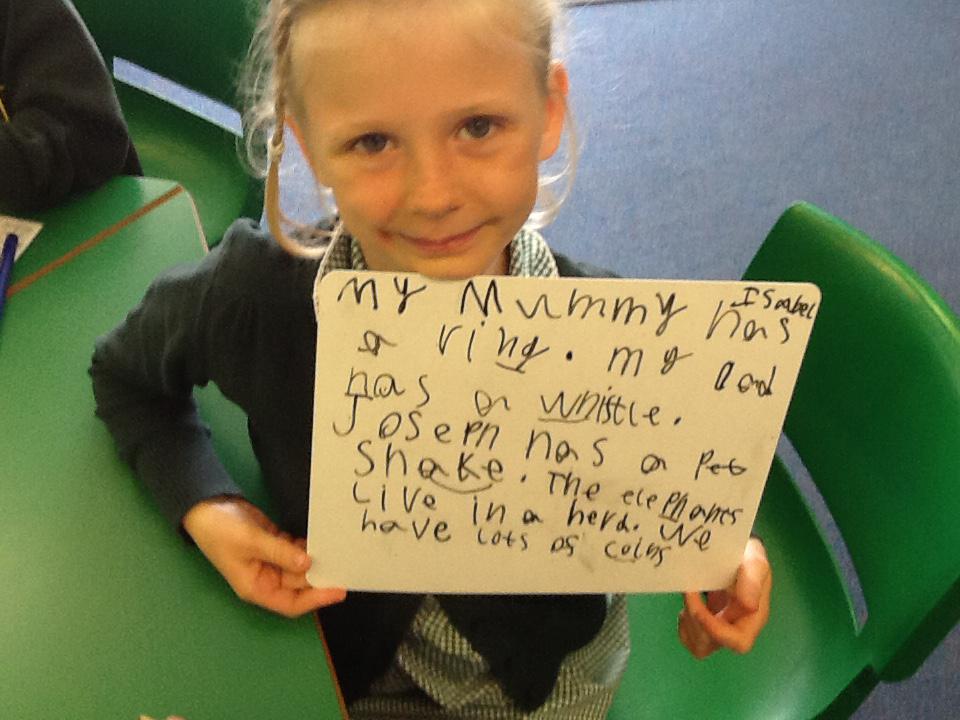 Isabel
My Mummy has
a ring. my Dad
has a whistle.
Joseph has a Pet
Snake. The elephants
Live in a herd. We
have lots of coins